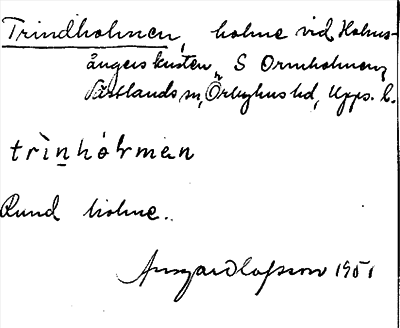 Trindholmen, holme vid Holms-
ångers kusten, S Ormholmen,
Västlands sn, Örbyhus hd, Upps. l.
trìnhól̥mɛn
Rund holme.
Ansgar Olofsson 1951